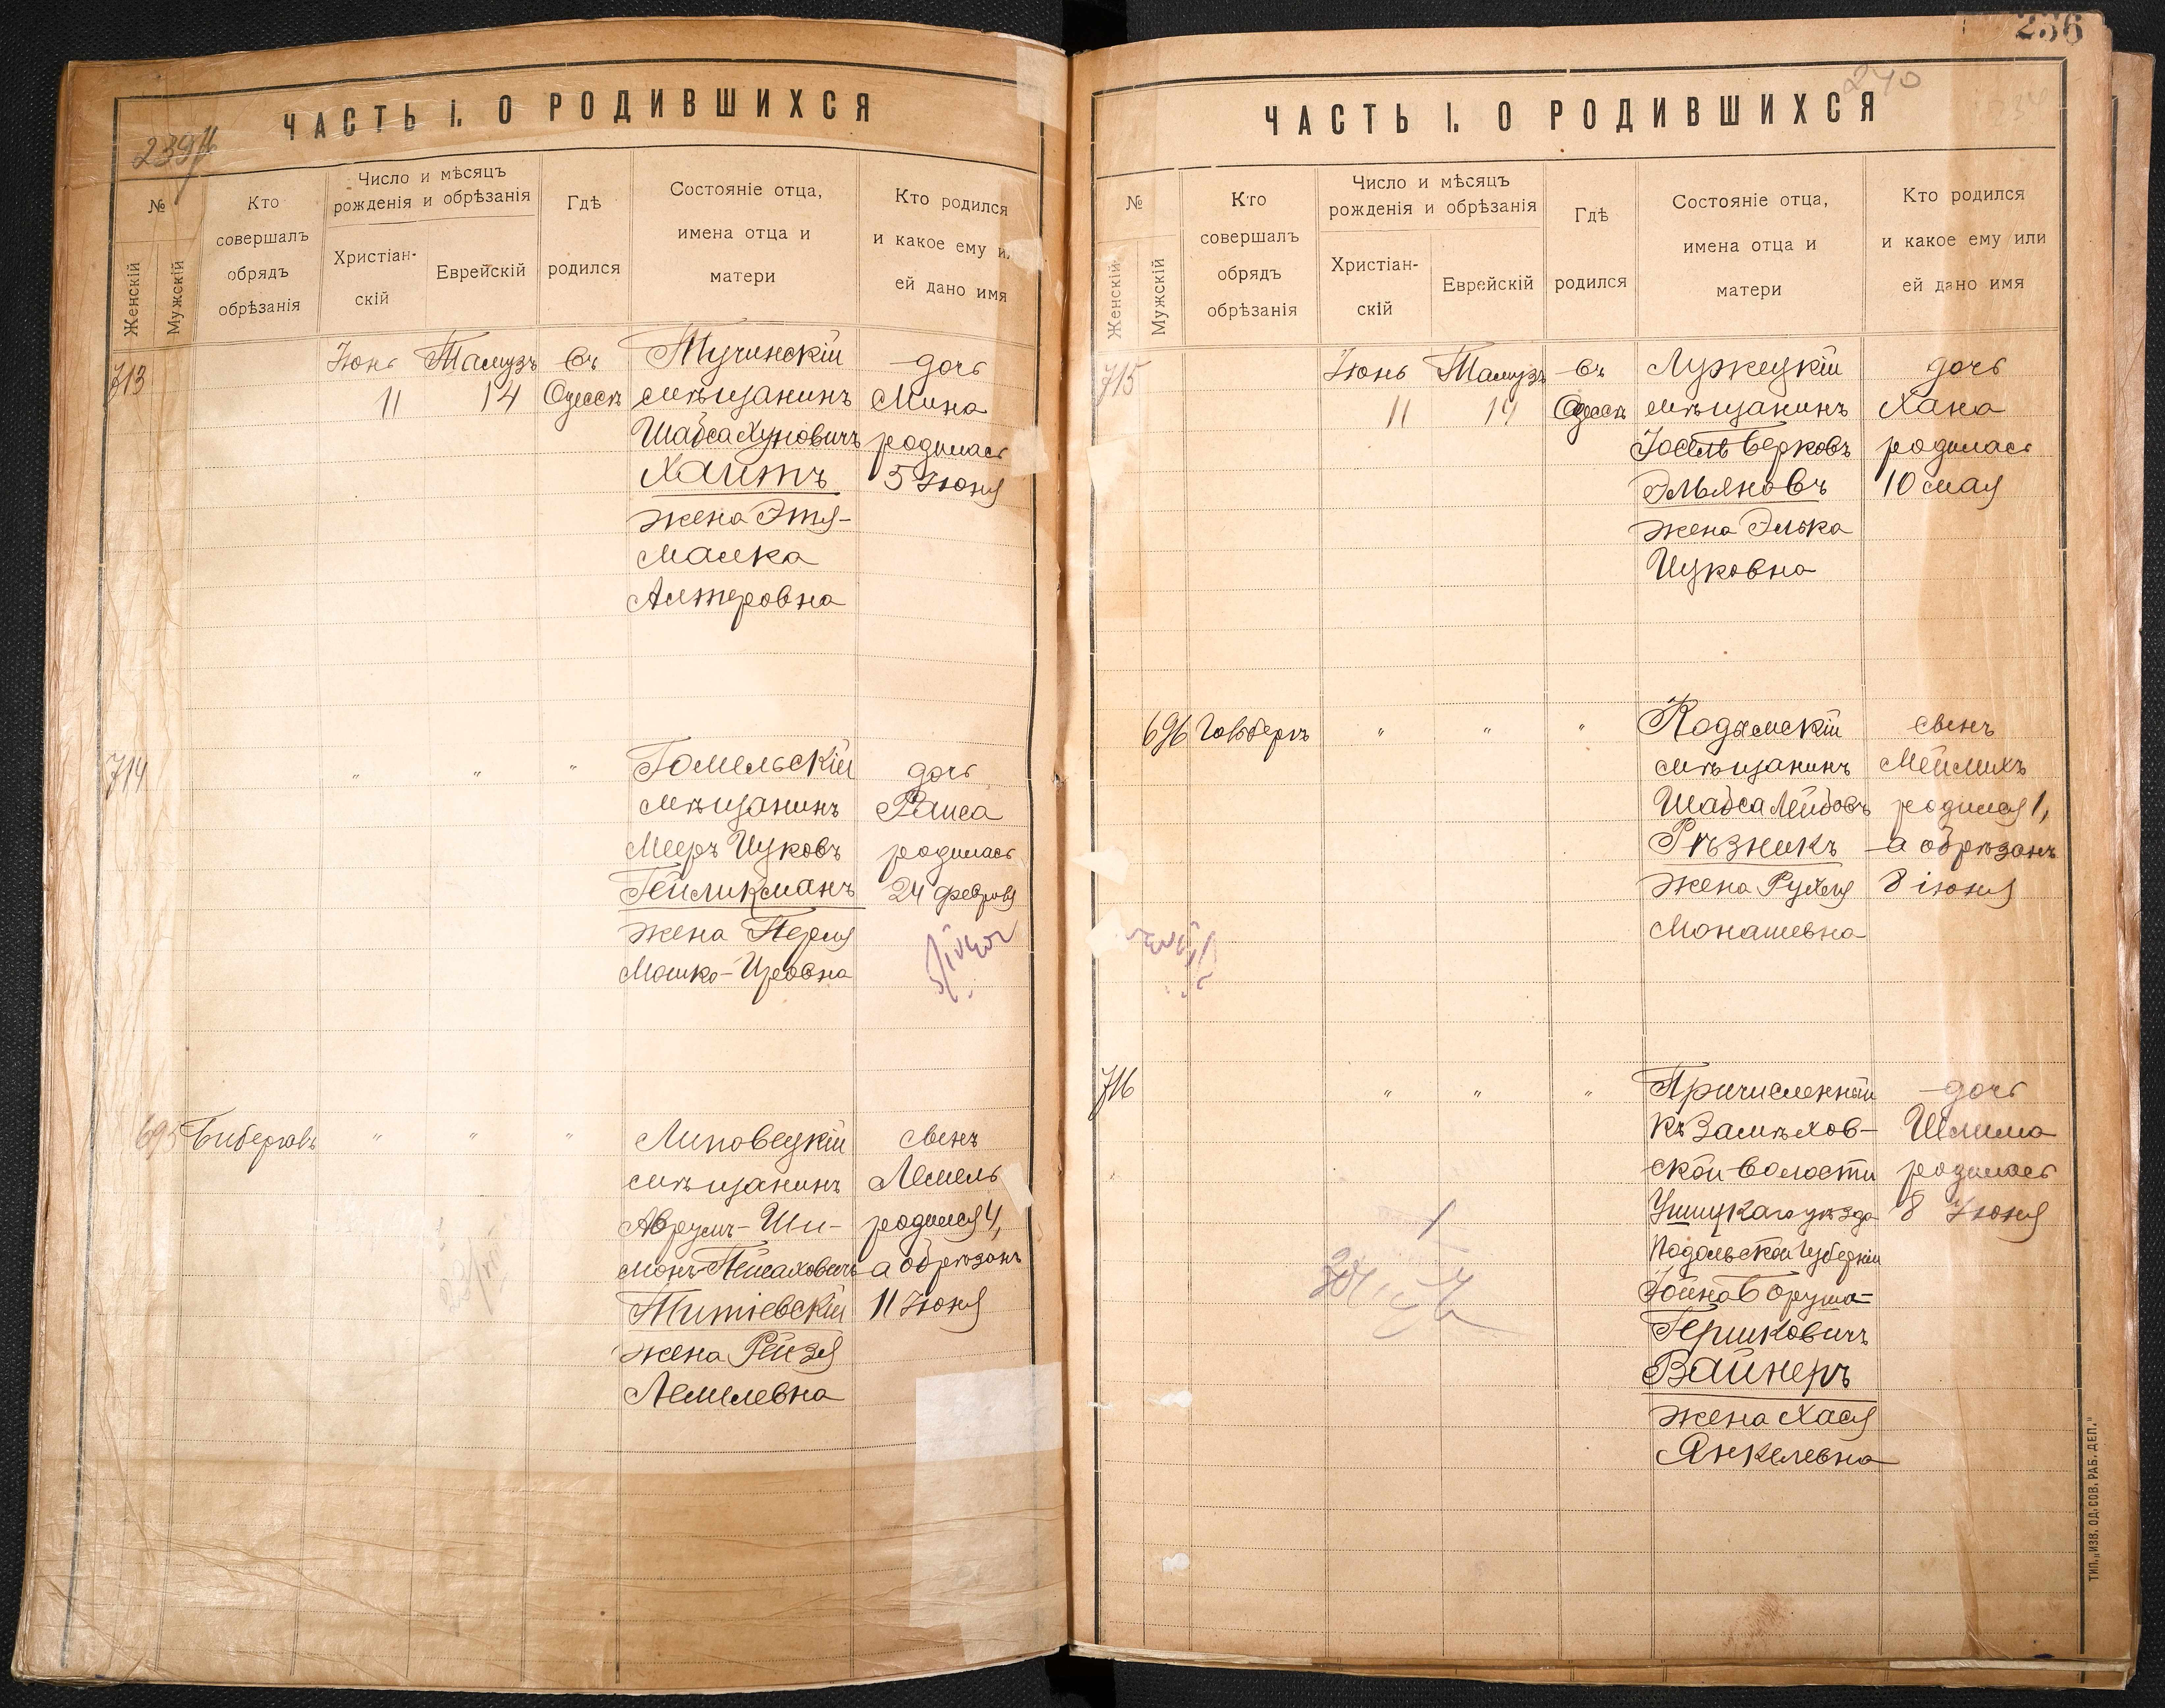 239
ЧАСТЬ I. О РОДИВШИХСЯ
№
Женскій
Мужскій
Кто
совершалъ
обрядъ
обрѣзанія
Число и мѣсяцъ
рожденія и обрѣзанія
Христіан-
скій
Еврейскій
Гдѣ
родился
Состояніе отца,
имена отца и
матери
Кто родился
и какое ему и
ей дано имя
713
Іюнь Тамузъ въ
11 14 Одессѣ
Тучинскій
мѣщанинъ
Шабса Хуновичъ
Хаитъ
жена Этя-
Малка
Алтеровна
дочь
Мина
родилась
5 Іюня
714
" " "
Гомельскій
мѣщанинъ
Мееръ Ицковъ
Гейликманъ
жена Перля
Мошко-Иревна
дочь
Раиса
родилась
24 февраля
695 Бибергалъ " " "
Липовецкій
мѣщанинъ
Аврумъ-Ши-
монъ Пейсаховичъ
Титіевскій
жена Рейзя
Лемелевна
сынъ
Лемель
родился 4,
а обрѣзанъ
11 Іюня
236
240
ЧАСТЬ I. О РОДИВШИХСЯ
№
Женскій
Мужскій
Кто
совершалъ
обрядъ
обрѣзанія
Число и мѣсяцъ
рожденія и обрѣзанія
Христіан-
скій
Еврейскій
Гдѣ
родился
Состояніе отца,
имена отца и
матери
Кто родился
и какое ему или
ей дано имя
715
Іюнь Тамузъ въ
11 14 Одессѣ
Лужецкій
мѣщанинъ
Іосель Берковъ
Эльяновъ
жена Элька
Ицковна
дочь
Хана
родилась
10 мая
696 Гольдбергъ " " "
Кодымскій
мѣщанинъ
Шабса Лейбовъ
Рѣзникъ
жена Рухля
Монашевна
сынъ
Мейлихъ
родился 1,
а обрѣзанъ
8 іюня
716
" " "
Причисленный
къ Замѣхов-
ской волости
Ушицкаго уѣзда
Подольской губерніи
Іойна Борухъ-
Гершковичъ
Вайнеръ
жена Хася
Янкелевна
дочь
Шлима
родилась
8 Іюня
ТИП. „ИЗВ. ОД. СОВ. РАБ. ДЕП."